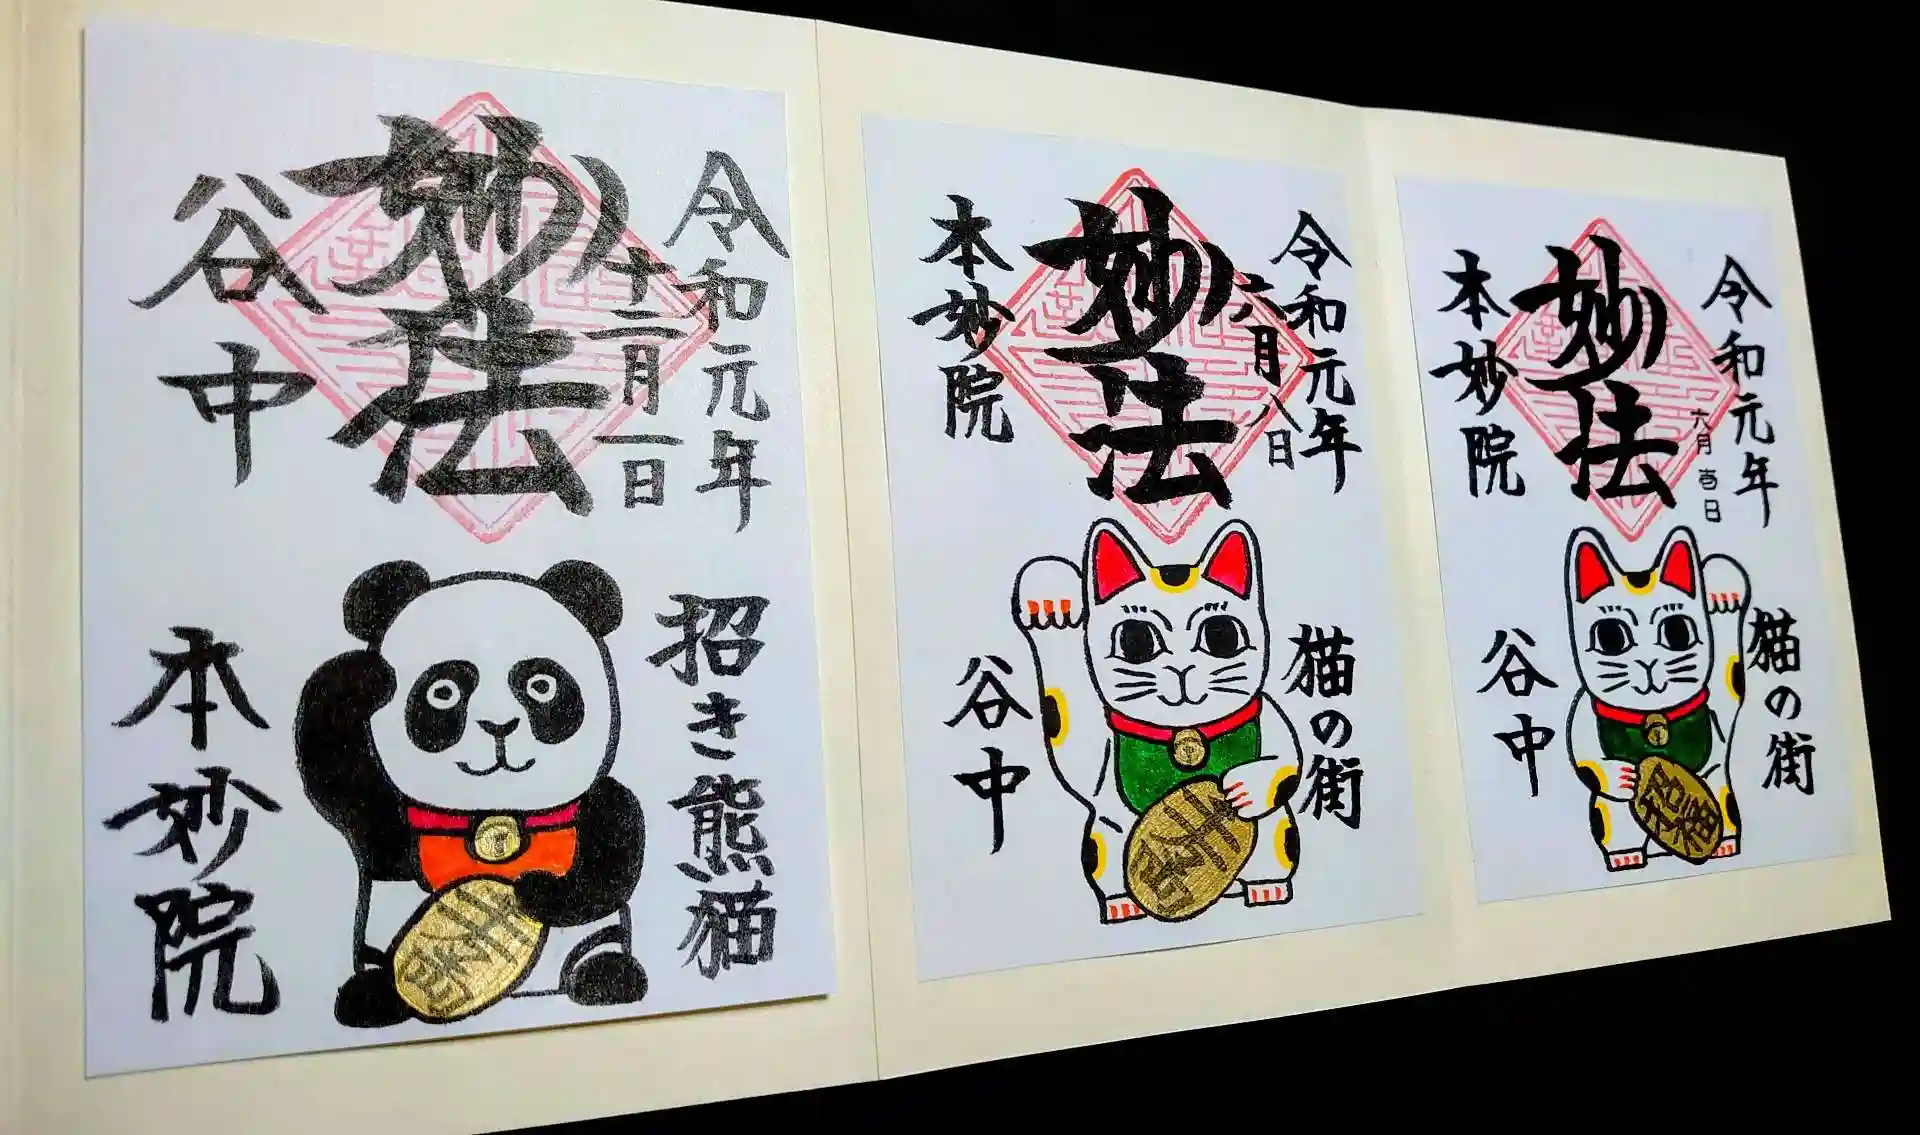 令和元年
十二月一日
妙法
谷中
招き熊猫
本妙院
令和元年
六月八日
妙法
本妙院
猫の街
谷中
令和元年
六月壱日
妙法
本妙院
猫の街
谷中
招福